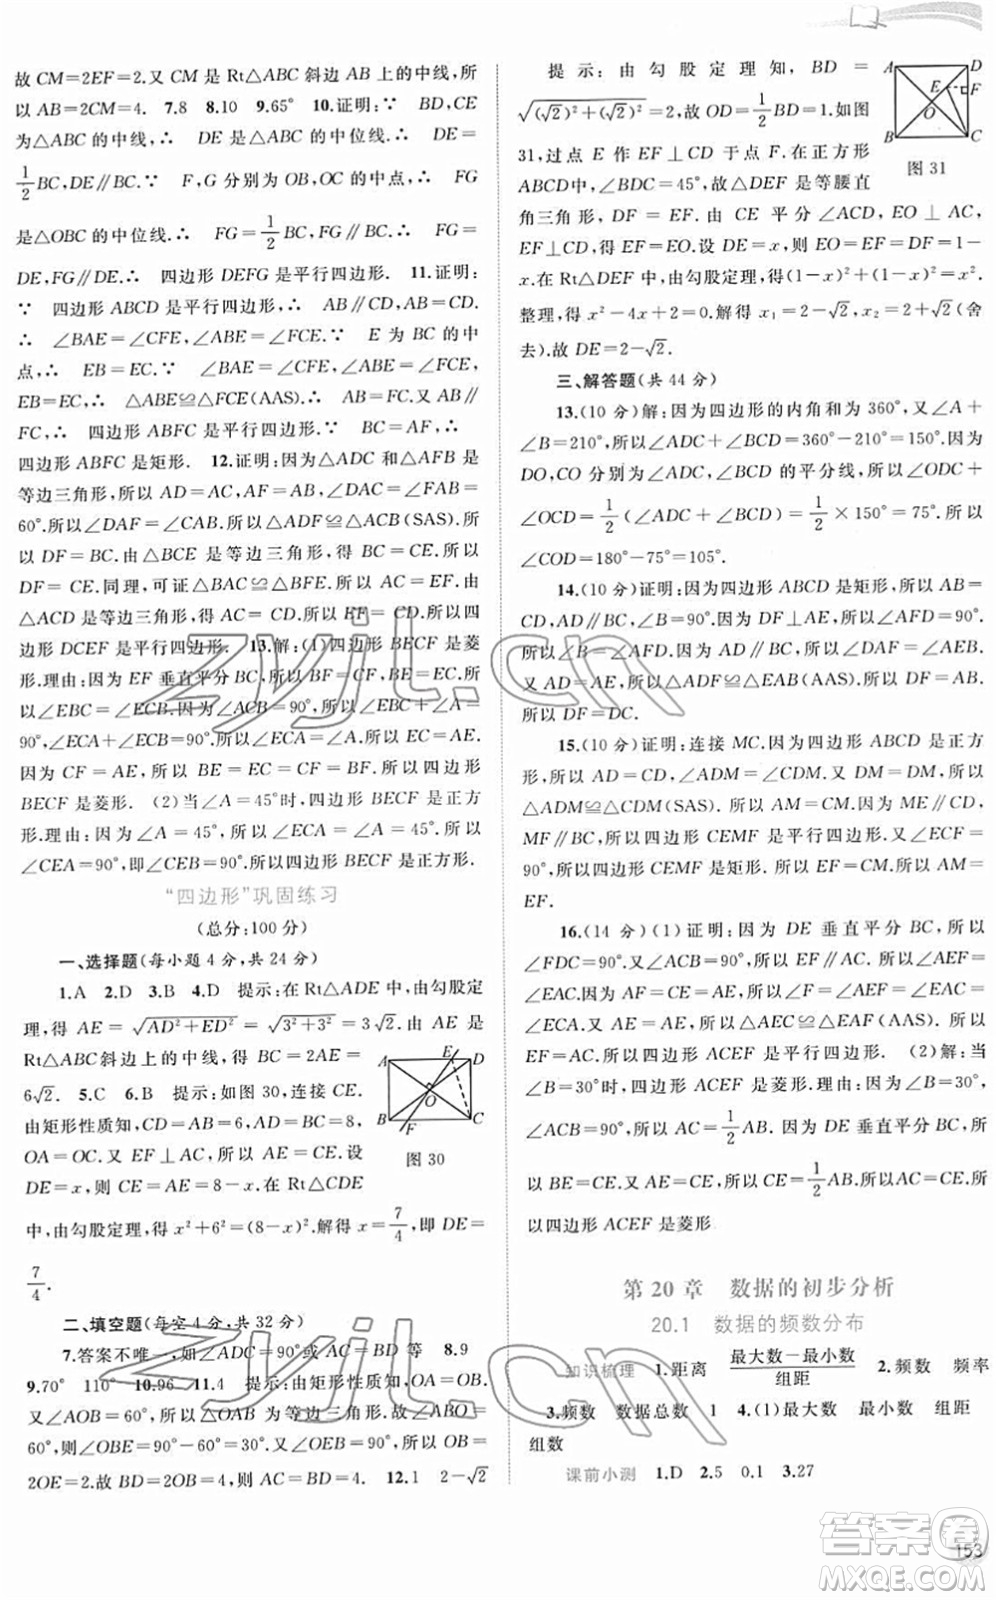 故 CM=2EF=2.又 CM 是 Rt△ABC 斜边 AB 上的中线,所
以 AB=2CM=4. 7.8 8.10 9.65° 10.证明:∵ BD,CE
为△ABC 的中线,∴ DE 是△ABC 的中位线.∴ DE=
1/2 BC,DE∥BC.∵ F,G 分别为 OB,OC 的中点,∴ FG
是△OBC 的中位线.∴ FG=1/2 BC,FG∥BC.∴ FG=
DE,FG∥DE.∴ 四边形 DEFG 是平行四边形. 11.证明:
∵ 四边形 ABCD 是平行四边形,∴ AB∥CD,AB=CD.
∴ ∠BAE=∠CFE,∠ABE=∠FCE.∵ E 为 BC 的中
点,∴ EB=EC.∵ ∠BAE=∠CFE,∠ABE=∠FCE,
EB=EC,∴ △ABE≌△FCE(AAS).∴ AB=CF.∵ AB∥
FC,∴ 四边形 ABFC 是平行四边形.∵ BC=AF,∴
四边形 ABFC 是矩形. 12.证明:因为△ADC 和△ABF 是
等边三角形,所以 AD=AC,AF=AB,∠DAC=∠FAB=
60°.所以∠DAF=∠CAB.所以△ADF≌△ACB(SAS).所
以 DF=BC.由△BCE 是等边三角形,得 BC=CE.所以
DF=CE.同理,可证△BAC≌△BFE.所以 AC=EF.由
△ACD 是等边三角形,得 AC=CD.所以 EF=CD.所以四
边形 DCEF 是平行四边形. 13.解:(1)四边形 BECF 是菱
形.理由:因为 EF 垂直平分 BC,所以 BF=CF,BE=CE.所
以∠EBC=∠ECB.因为∠ACB=90°,所以∠EBC+∠A=
90°,∠ECA+∠ECB=90°.所以∠ECA=∠A.所以 CE=AE.
因为 CF=AE,所以 BE=EC=CF=BF.所以四边形
BECF 是菱形. (2)当∠A=45°时,四边形 BECF 是正方
形.理由:因为∠A=45°,所以∠ECA=∠A=45°.所以
∠CEA=90°,即∠CEB=90°.所以四边形 BECF 是正方形.
“四边形”巩固练习
(总分:100 分)
一、选择题(每小题 4 分,共 24 分)
1.A 2.D 3.B 4.D 提示:在 Rt△ADE 中,由勾股定
理,得 AE=√(AD²+ED²)=√(3²+3²)=3√2.由 AE 是
Rt△ABC 斜边上的中线,得 BC=2AE=
6√2. 5.C 6.B 提示:如图 30,连接 CE.
由矩形性质知,CD=AB=6,AD=BC=8,
OA=OC.又 EF⊥AC,所以 AE=CE.设
DE=x,则 CE=AE=8-x.在 Rt△CDE
中,由勾股定理,得 x²+6²=(8-x)².解得 x=7/4,即 DE=
7/4.
A E D
O
B F C
图 30
二、填空题(每空 4 分,共 32 分)
7.答案不唯一,如∠ADC=90°或 AC=BD 等 8.9
9.70° 110° 10.96 11.4 提示:由矩形性质知,OA=OB.
又∠AOB=60°,所以△OAB 为等边三角形.故∠ABO=
60°,则∠OBE=90°-60°=30°.又∠OEB=90°,所以 OB=
2OE=2.故 BD=2OB=4,则 AC=BD=4. 12.1 2-√2
提示:由勾股定理知,BD=
√((√2)²+(√2)²)=2,故 OD=1/2 BD=1.如图
31,过点 E 作 EF⊥CD 于点 F.在正方形
ABCD中,∠BDC=45°,故△DEF 是等腰直
角三角形,DF=EF.由 CE 平分∠ACD,EO⊥AC,
EF⊥CD,得 EO=EF.设 DE=x,则 EO=EF=DF=1-
x.在 Rt△DEF 中,由勾股定理,得(1-x)²+(1-x)²=x².
整理,得 x²-4x+2=0.解得 x₁=2-√2,x₂=2+√2(舍
去).故 DE=2-√2.
A D
E F
O
B C
图 31
三、解答题(共 44 分)
13.(10 分)解:因为四边形的内角和为 360°,又∠A+
∠B=210°,所以∠ADC+∠BCD=360°-210°=150°.因为
DO,CO 分别为∠ADC,∠BCD 的平分线,所以∠ODC+
∠OCD=1/2(∠ADC+∠BCD)=1/2×150°=75°.所以
∠COD=180°-75°=105°.
14.(10 分)证明:因为四边形 ABCD 是矩形,所以 AB=
CD,AD∥BC,∠B=90°.因为 DF⊥AE,所以∠AFD=90°.
所以∠AFD=∠B.由 AD∥BC,所以∠DAF=∠AEB.
又 AD=AE,所以△ADF≌△EAB(AAS).所以 DF=AB.
所以 DF=DC.
15.(10 分)证明:连接 MC.因为四边形 ABCD 是正方
形,所以 AD=CD,∠ADM=∠CDM.又 DM=DM,所以
△ADM≌△CDM(SAS).所以 AM=CM.因为 ME∥CD,
MF∥BC,所以四边形 CEMF 是平行四边形.又∠ECF=
90°,所以四边形 CEMF 是矩形.所以 EF=CM.所以 AM=
EF.
16.(14 分)(1)证明:因为 DE 垂直平分 BC,所以
∠FDC=90°.又∠ACB=90°,所以 DF∥AC.所以∠AEF=
∠EAC.因为 AF=CE=AE,所以∠F=∠AEF=∠EAC=
∠ECA.又 AE=EA,所以△AEC≌△EAF(AAS).所以
EF=AC.所以四边形 ACEF 是平行四边形. (2)解:当
∠B=30°时,四边形 ACEF 是菱形.理由:因为∠B=30°,
∠ACB=90°,所以 AC=1/2 AB.因为 DE 垂直平分 BC,所
以 BE=CE.又 AE=CE,所以 CE=1/2 AB.所以 AC=CE.所
以四边形 ACEF 是菱形
第 20 章 数据的初步分析
20.1 数据的频数分布
知识梳理 1.距离 最大数-最小数/组距 2.频数 频率
3.频数 数据总数 1 4.(1)最大数 最小数 组距
组数
课前小测 1.D 2.5 0.1 3.27
153
zyjl.cn
zyjl.cn
答案圈
MXQE.COM